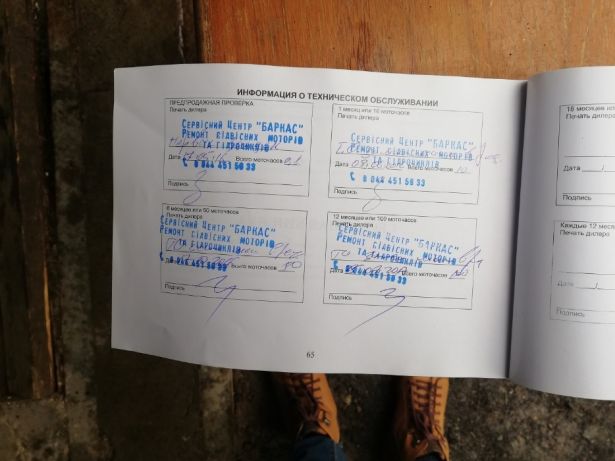 ИНФОРМАЦИЯ О ТЕХНИЧЕСКОМ ОБСЛУЖИВАНИИ
ПРЕДПРОДАЖНАЯ ПРОВЕРКА
Печать дилера
Сервісний Центр "БАРКАС"
Ремонт підвісних моторів
та гідроциклів
Дата Всего моточасов 0,1
044 451 56 33
Подпись
1 месяц или 10 моточасов
Печать дилера
Сервісний Центр "БАРКАС"
Ремонт підвісних моторів
та гідроциклів
Дата Всего моточасов 10
044 451 56 33
Подпись
6 месяцев или 50 моточасов
Печать дилера
Сервісний Центр "БАРКАС"
Ремонт підвісних моторів
та гідроциклів
ТО
Всего моточасов 50
044 451 56 33
Подпись
12 месяцев или 100 моточасов
Печать дилера
Сервісний Центр "БАРКАС"
Ремонт підвісних моторів
та гідроциклів
ТО
Всего моточасов
044 451 56 33
Подпись
65
18 месяцев или
Печать дилера
Дата
Подпись
Каждые 12 меся
Печать дилера
Дата
Подпись